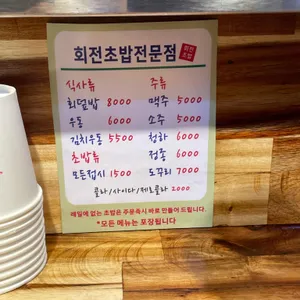 회전초밥전문점 회전초밥
식사류 주류
회덮밥 8000 맥주 5000
우동 6000 소주 5000
김치우동 5500 청하 6000
초밥류 정종 6000
모든접시 1500 도꾸리 7000
콜라/사이다/제로콜라 2000
레일에 없는 초밥은 주문즉시 바로 만들어 드립니다.
*모든 메뉴는 포장됩니다